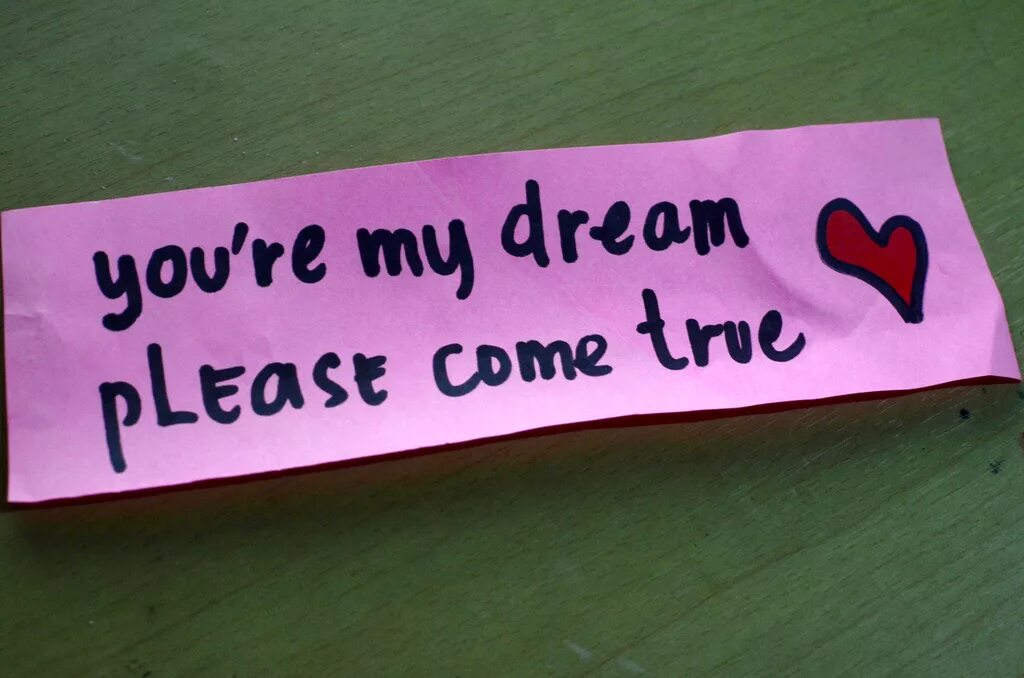 you're my dream
pLEasE come true